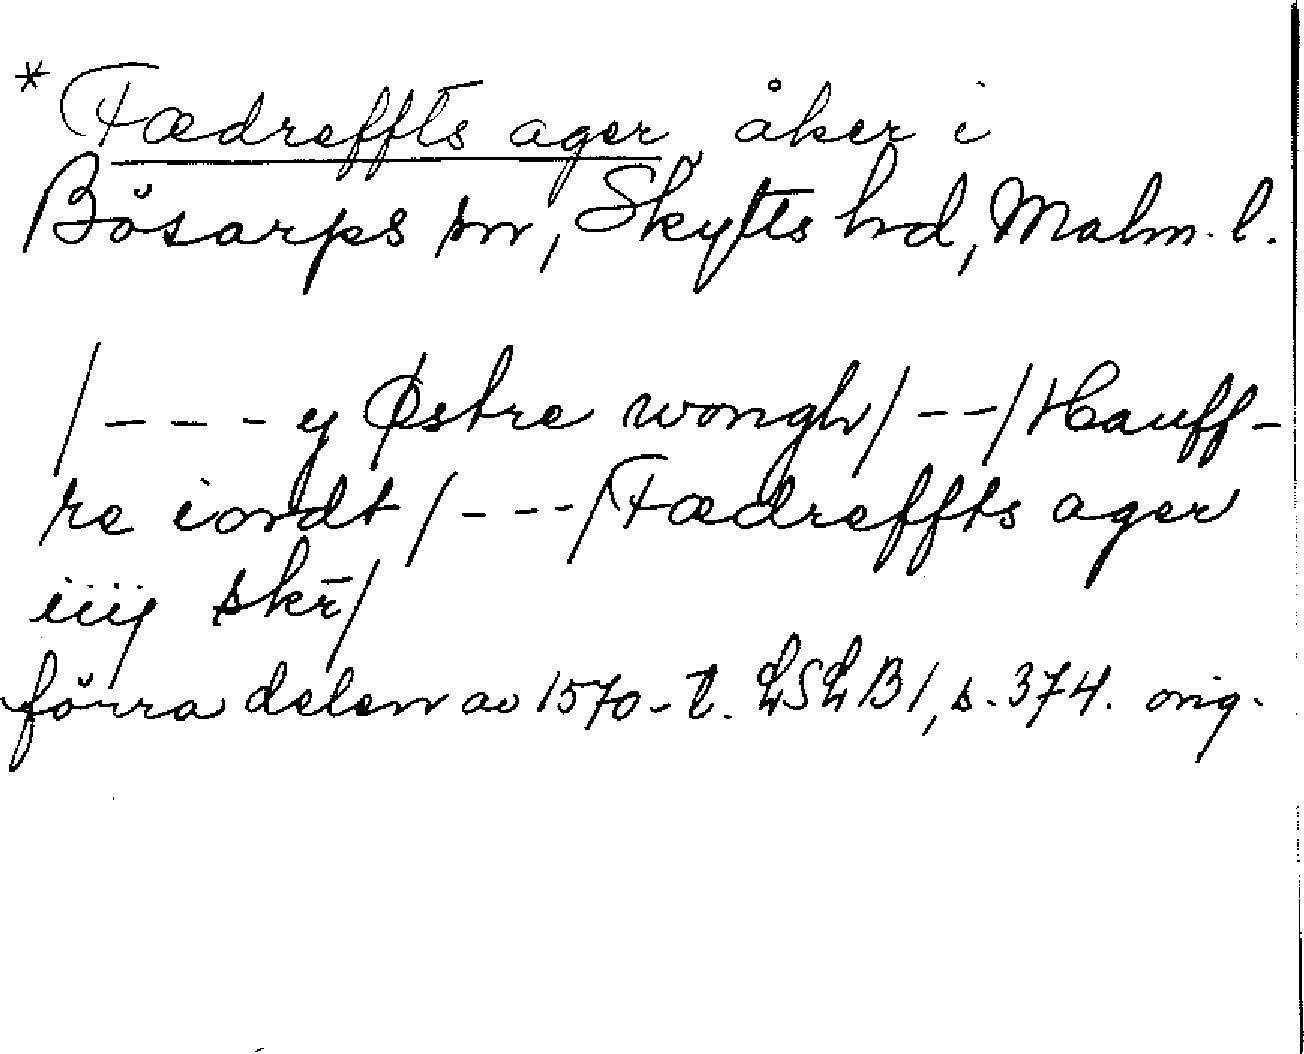 * Fædreffts ager åker i
Bösarps sn, Skytts hd, Malm. l.
/---y Østre wongh/--/Hauff-
re iordt/---/Fædreffts ager
iiij skr̄/
förra delen av 1570-t. LSLB1, s. 374. orig.